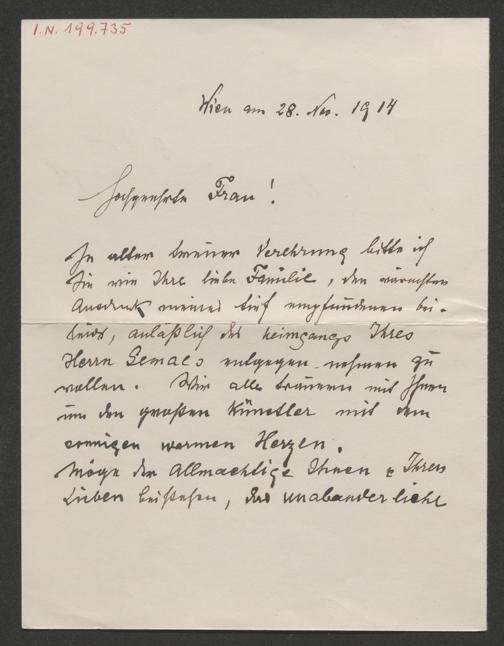 I.N. 199.735
Wien am 28. Nov. 1914
Hochgeehrte Frau!
In alter treuer Verehrung bitte ich
Sie wie Ihre liebe Familie, den wärmsten
Ausdruck meines tief empfundenen Bei-
leids, anläßlich des Heimgangs Ihres
Herrn Gemals entgegen nehmen zu
wollen. Wir alle trauern mit Ihnen
um den großen Künstler mit dem
sonnigen warmen Herzen.
Möge der Allmächtige Ihnen & Ihren
Lieben beistehen, das unabänderliche